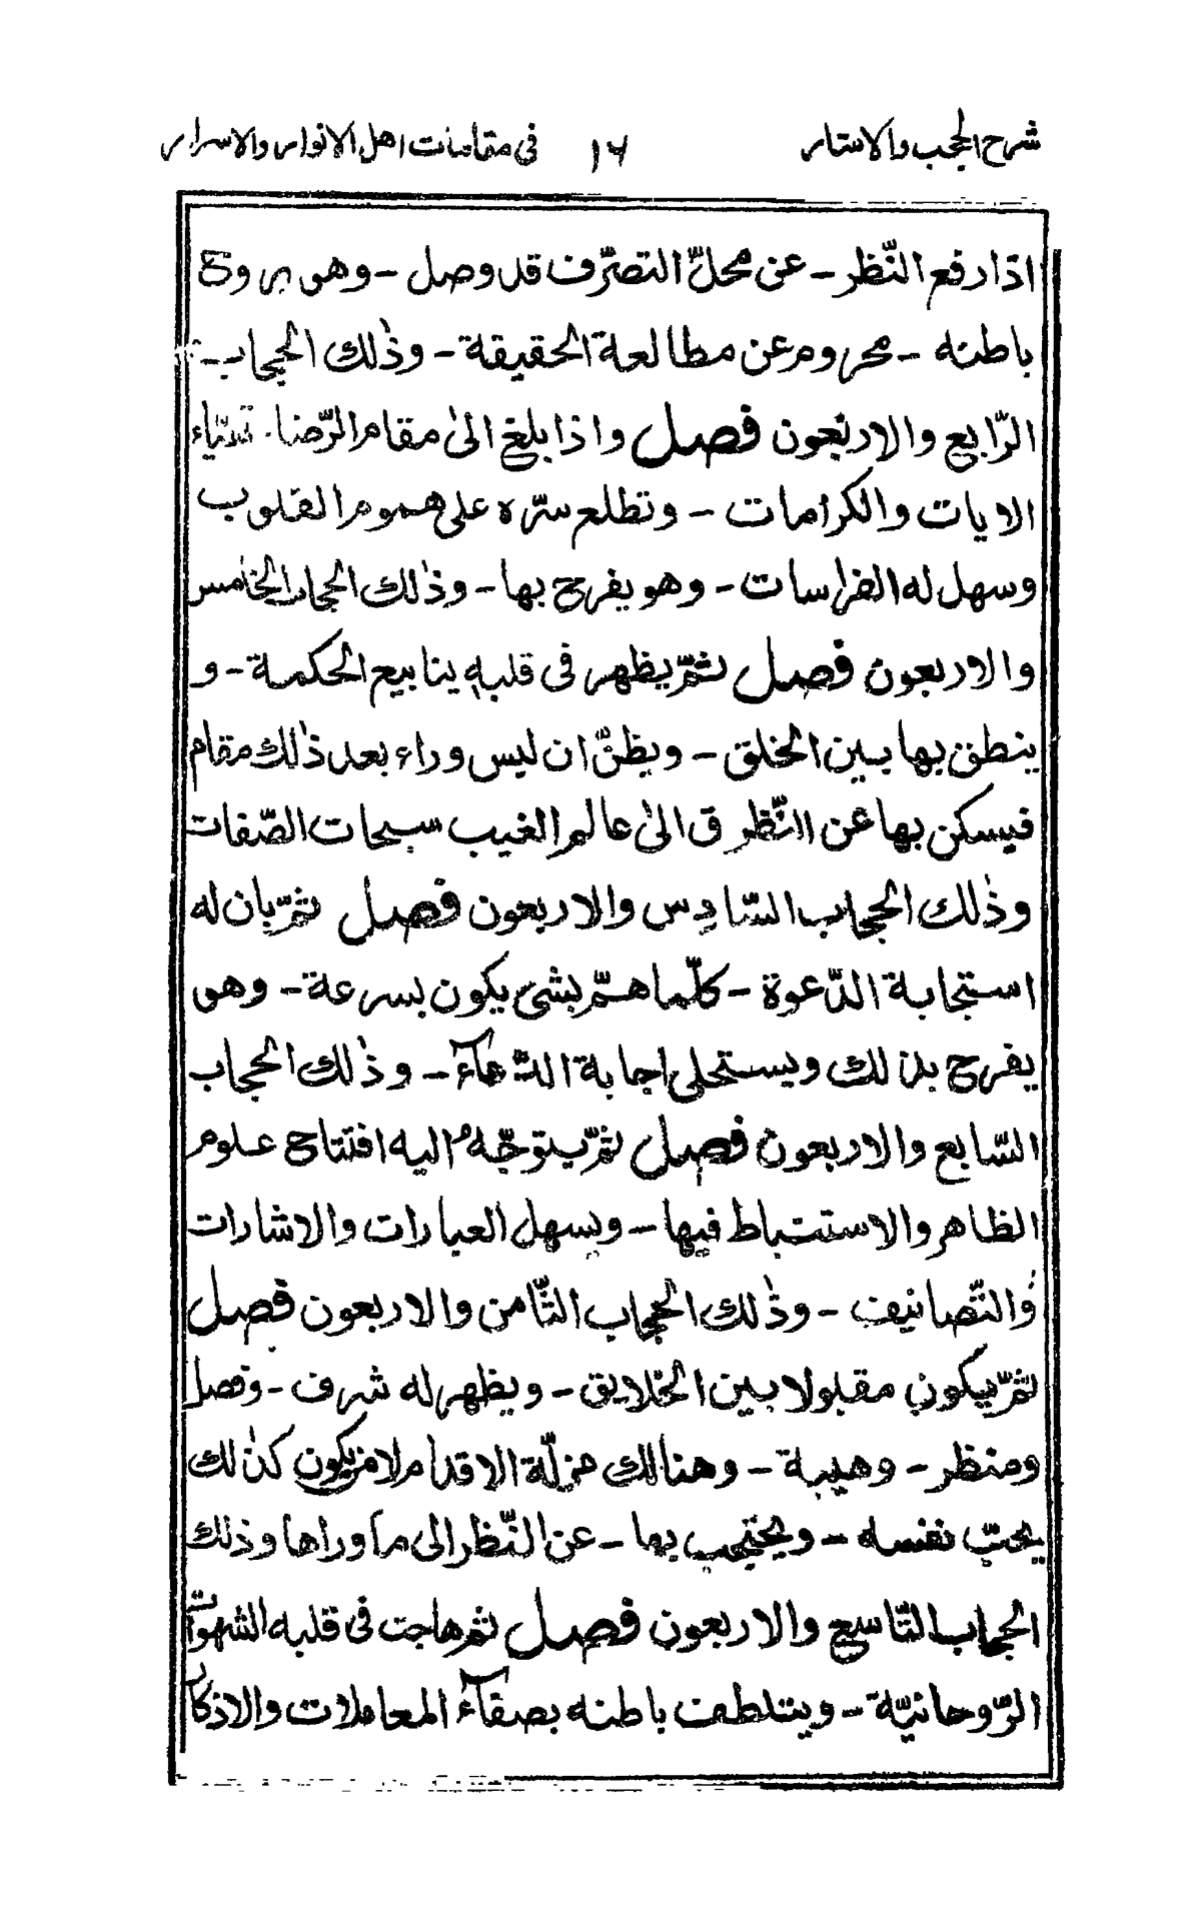 شرح الحجب والاستار ١٦ فى مقامات اهل الانوار والاسرار
اذا رفع النّظر - عن محلّ التصرّف قد وصل - وهو بروح
باطنه - محروم عن مطالعة الحقيقة - وذٰلك الحجاب -
الرّابع والاربعون فصل واذا بلغ الىٰ مقام الرّضا
الايات والكرامات - وتطلع سرّه على هموم القلوب
وسهل له الفراسات - وهو يفرح بها - وذٰلك الحجاب الخامس
والاربعون فصل ثمّ يظهر فى قلبه ينابيع الحكمة - و
ينطق بها بين الخلق - ويظنّ ان ليس وراء بعد ذٰلك مقام
فيسكن بها عن النّظر ق الىٰ عالم الغيب سبحات الصّفات
وذٰلك الحجاب السّادِس والاربعون فصل ثمّ بان له
استجابة الدّعوة - كلّما همّ بشئ يكون بسرعة - وهو
يفرح بذلك ويستحلى اجابة الدّعآء - وذٰلك الحجاب
السّابع والاربعون فصل ثمّ يتوجّه اليه افتتاح علوم
الظاهر والاستنباط فيها - ويسهل العبارات والاشارات
والتّصانيف - وذٰلك الحجاب الثّامن والاربعون فصل
ثمّ يكون مقبولا بين الخلايق - ويظهر له شرف - وفصل
ومنظر - وهيبة - وهنالك مزلّة الاقدام لا من يكون كذٰلك
يحبّ نفسه - ويحتجب بها - عن النّظر الى ما وراها وذلك
الحجاب التّاسع والاربعون فصل ثم هاجت فى قلبه الشهوات
الرّوحانيّة - ويتلطف باطنه بصفآء المعاملات والاذكار